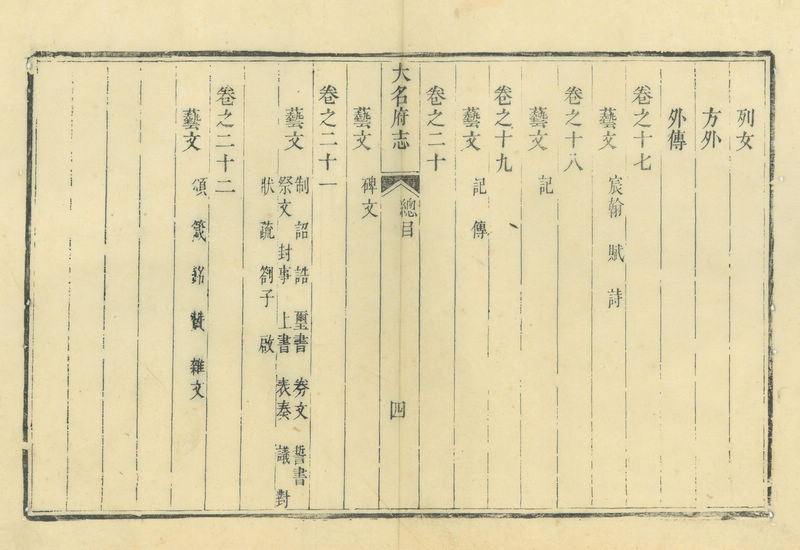 列女
方外
外傳
卷之十七
藝文 宸翰 賦 詩
卷之十八
藝文 記
卷之十九
藝文 記 傳
卷之二十
大名府志 總目 四
藝文 碑文
卷之二十一
藝文 制 詔 誥 璽書 券文 誓書
祭文 封事 上書 表奏 議 對
狀 疏 劄子 啟
卷之二十二
藝文 頌 箴 銘 贊 雜文